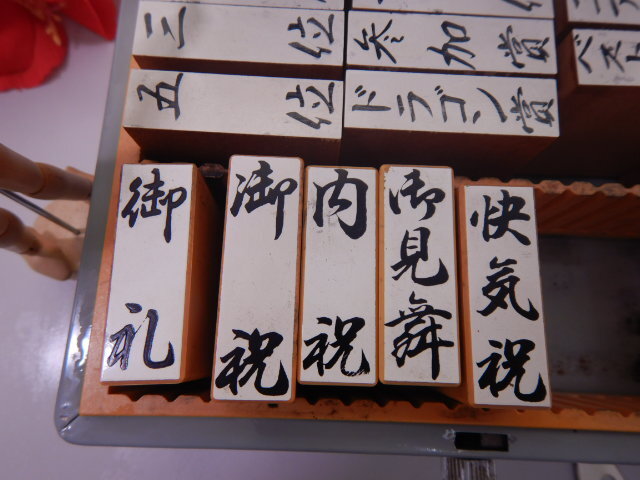 三位
参加賞
ベスト
五位
ドラゴン賞
御礼
御祝
内祝
御見舞
快気祝